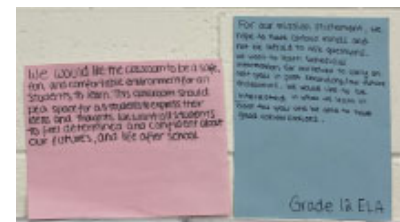 We would like the classroom to be a safe,
fun, and comfortable environment for all
students to learn. This classroom should
be a space for all students to express their
ideas and thoughts. We want all students
to feel determined and confident about
our futures, and life after school.
For our mission statement, we
hope to have curious minds and
not be afraid to ask questions.
We want to learn beneficial
information for ourselves to carry on
next year in post secondary/our future
endeavours. We would like to be
interested in what we learn in
class this year and be able to have
good conversations.
Grade 12 ELA